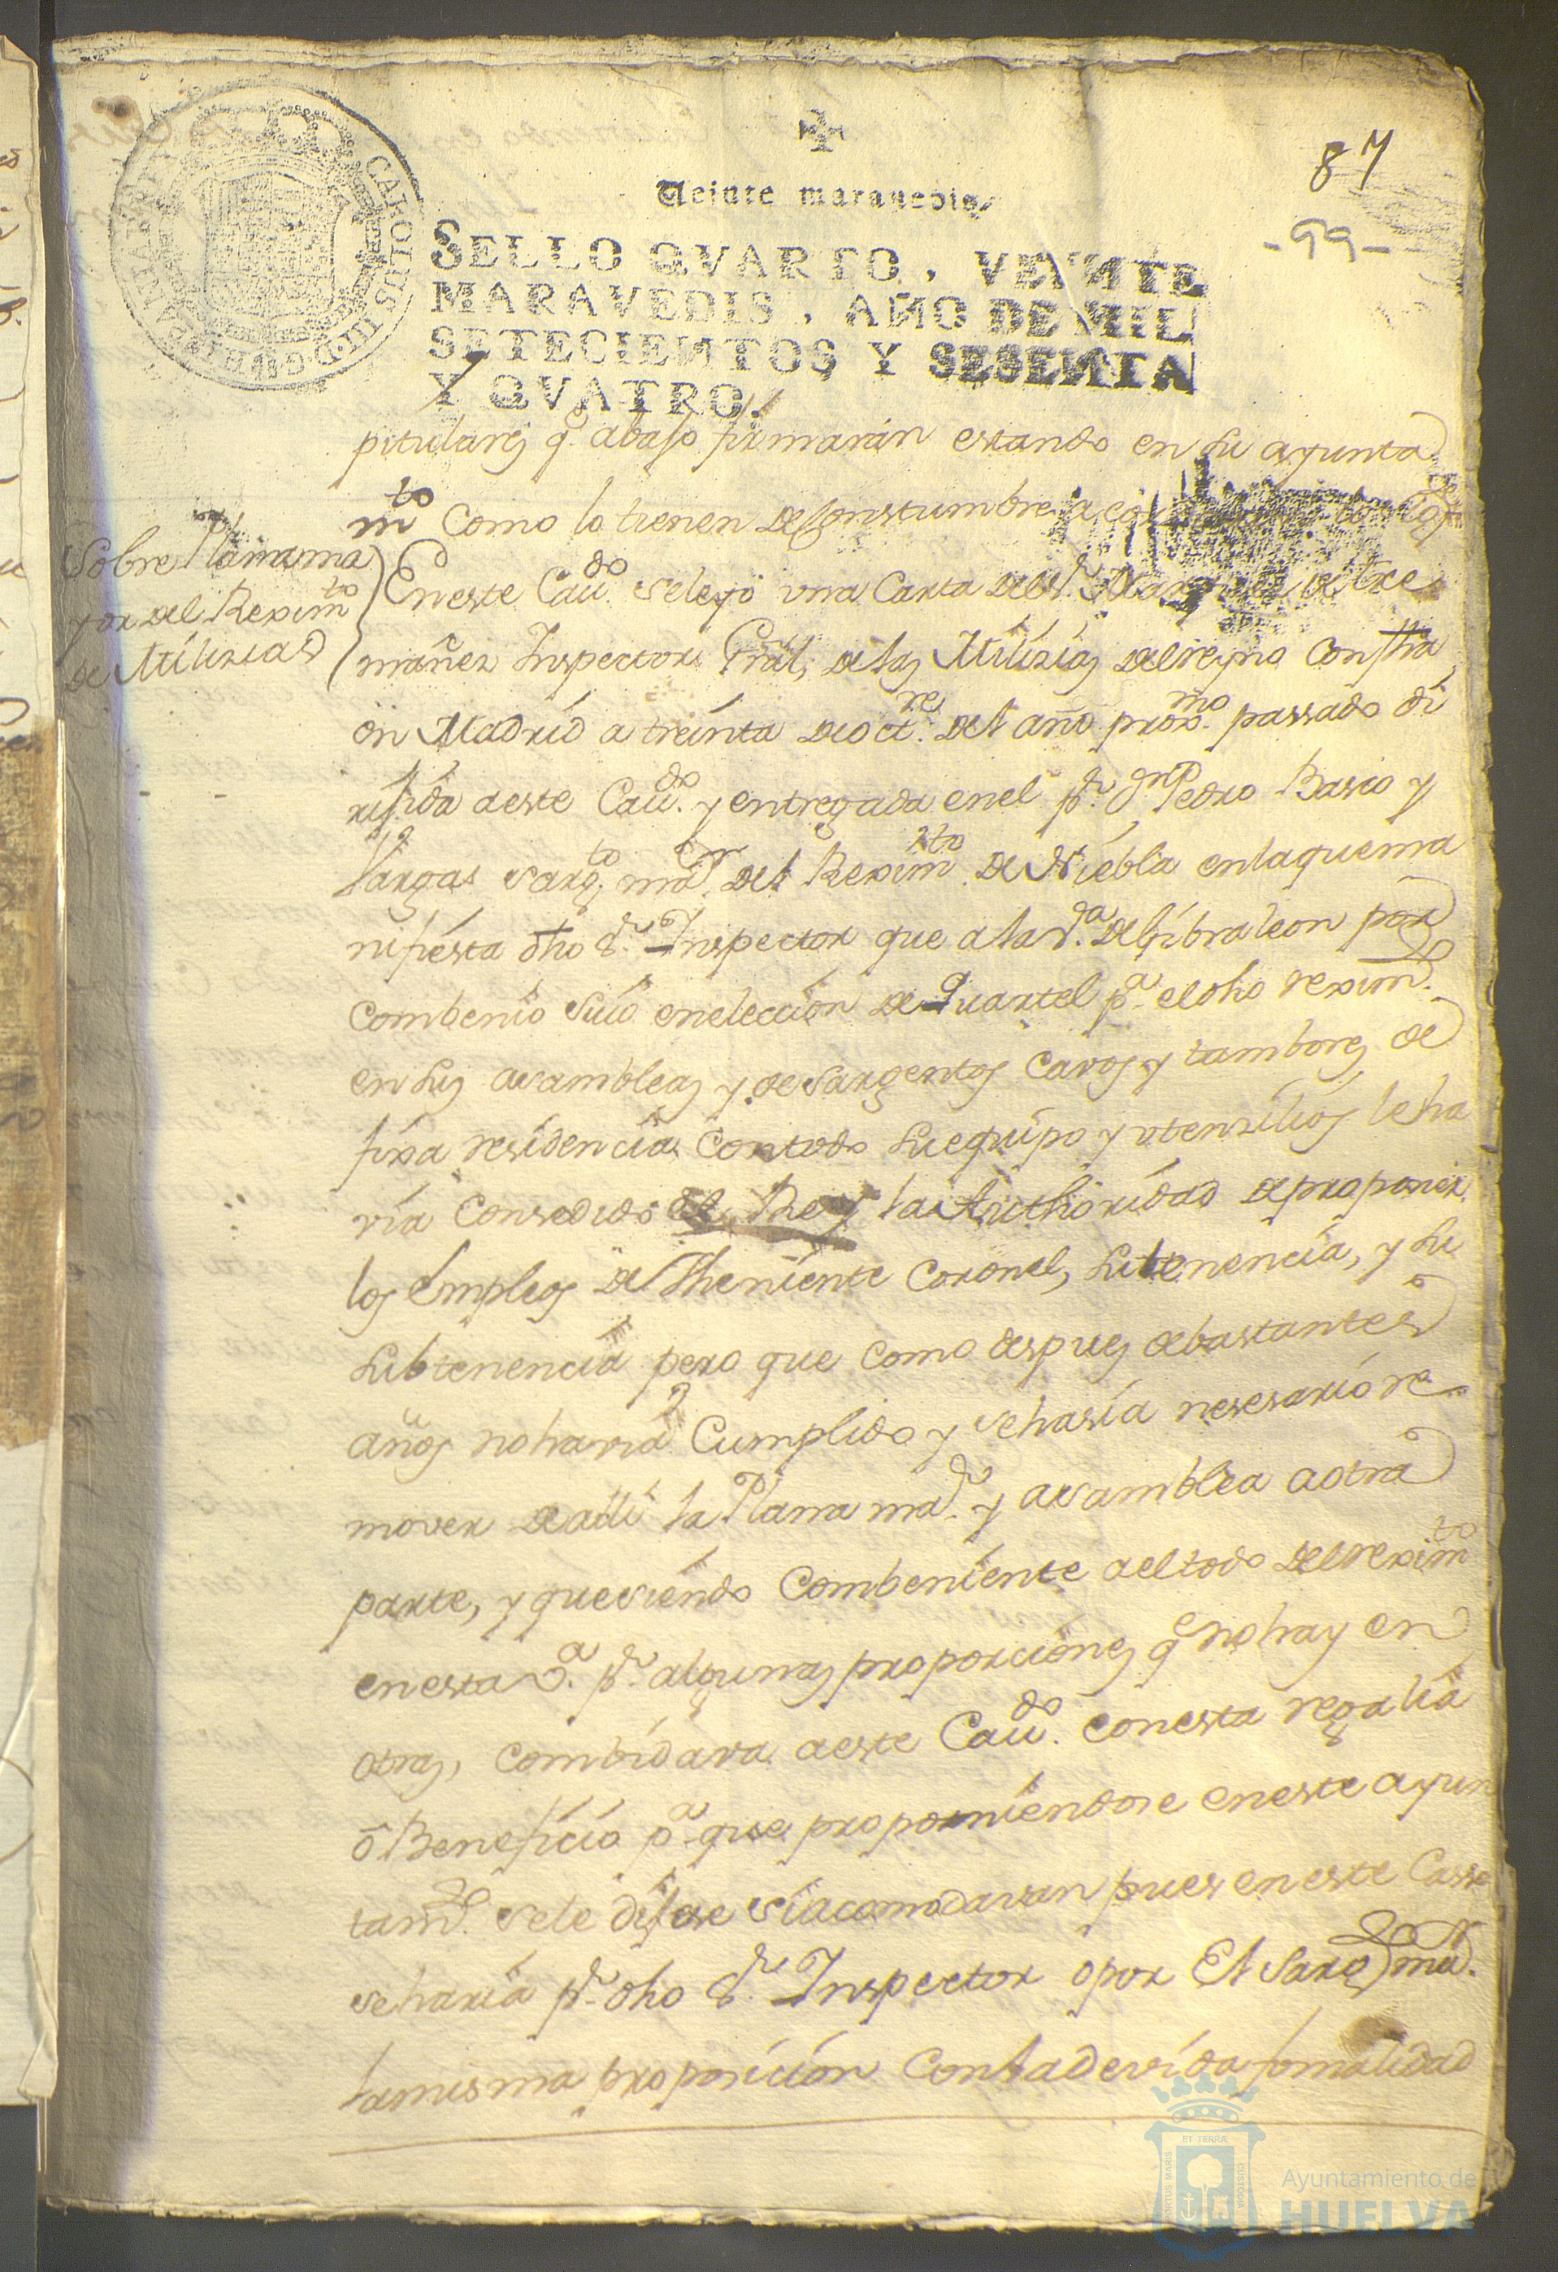 87
-99-
CAROLUS III D.G. HISPANIAR. REX
Veinte maravedis.
SELLO QVARTO, VEINTE
MARAVEDIS, AÑO DE MIL
SETECIENTOS Y SESENTA
Y QVATRO.
pitulares q.e abajo firmarán estando en su ayunta
m.to como lo tienen de Constumbre
Sobre Plana ma
yor del Rexim.to
de Milizias
En este Cau.do se leyó una Carta del S.r Marq
mañez Inspector Gral, de las Milizias del reyno con fha
en Madrid a treinta de oct.re del año prox.mo passado di
rijida a este Cau.do y entregada en el p.r D.n Pedro Basco y
Vargas sarg.to ma.r del Rexim.to de Niebla en la que ma
nifiesta dho S.r Inspector que a la V.a de Gibraleon por
combenio suio en eleccion de Quartel p.a el dho rexim.to
en sus asambleas y de sargentos cavos y tambores de
fixa residencia con todo su equipo y utenzilios le ha
via consedido el Rey la Authoridad de proponer
los Empleos de Theniente Coronel, subtenencia, y su
subtenencia pero que como despues de bastantes
años no havia Cumplido y se hasia nesesario re
mover de alli la Plana ma.r y asamblea a otra
parte, y que siendo combeniente a el todo del rexim.to
en esta V.a p.r algunas proporciones q.e no hay en
otras, combidava a este Cau.do con esta regalia
o Beneficio p.a que proponiendose en este ayun
tam.to se le dijese si acomodavan pues en este Casso
se haria p.r dho S.r Inspector o por El Sarg.to ma.r
la misma proposicion con la devida fomalidad
ET TERRÆ
PORTUS MARIS
CUSTODIA
Ayuntamiento de
HUELVA